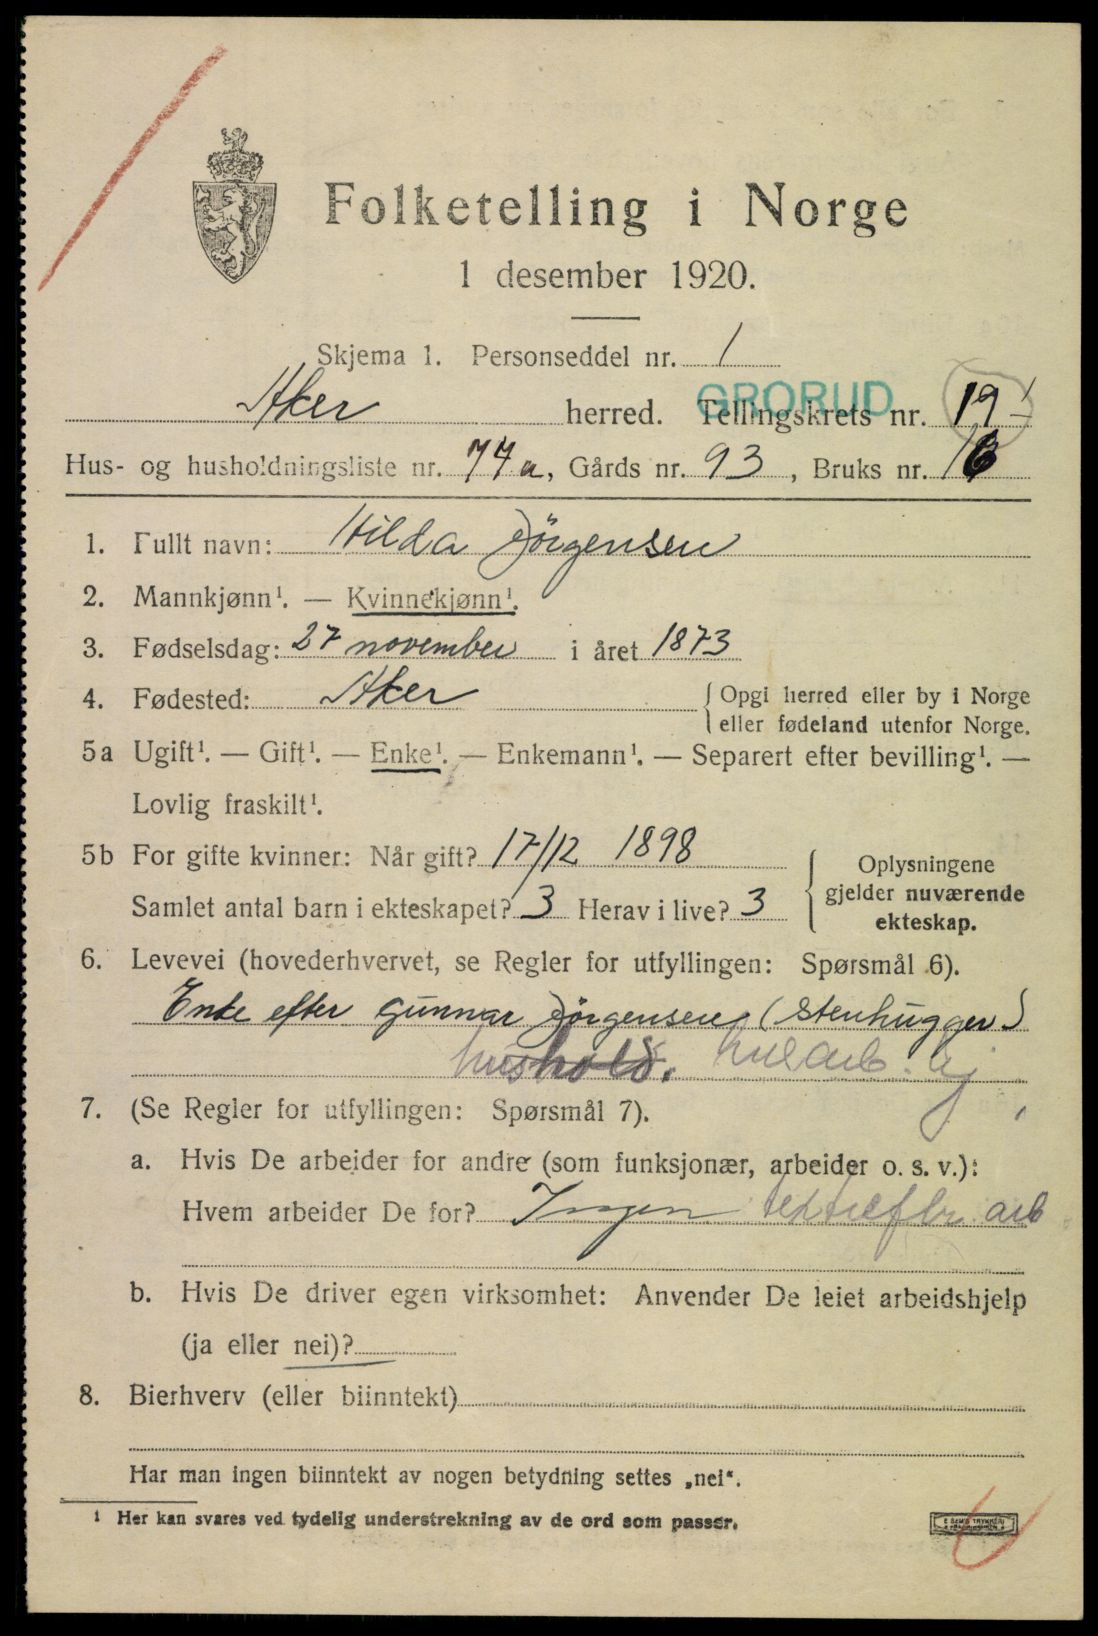 Folketelling i Norge
1 desember 1920.
Skjema 1. Personseddel nr. 1
GRORUD
Aker herred. Tellingskrets nr. 19
Hus- og husholdningsliste nr. 77a, Gårds nr. 93, Bruks nr. 16
1. Fullt navn: Hilda Jörgensen
2. Mannkjønn¹. — Kvinnekjønn¹.
3. Fødselsdag: 27 november i året 1873
4. Fødested: Aker {Opgi herred eller by i Norge
eller fødeland utenfor Norge.
5a Ugift¹. — Gift¹. — Enke¹. — Enkemann¹. — Separert efter bevilling¹. —
Lovlig fraskilt¹.
5b For gifte kvinner: Når gift? 17/12 1898
Samlet antal barn i ekteskapet? 3 Herav i live? 3
{Oplysningene
gjelder nuværende
ekteskap.
6. Levevei (hovederhvervet, se Regler for utfyllingen: Spørsmål 6).
Enke efter Gunnar Jörgensen (Stenhugger)
hushold.
7. (Se Regler for utfyllingen: Spørsmål 7).
a. Hvis De arbeider for andre (som funksjonær, arbeider o. s. v.):
Hvem arbeider De for? Ingen arb
b. Hvis De driver egen virksomhet: Anvender De leiet arbeidshjelp
(ja eller nei)?
8. Bierhverv (eller biinntekt)
Har man ingen biinntekt av nogen betydning settes „nei“.
¹ Her kan svares ved tydelig understrekning av de ord som passer.